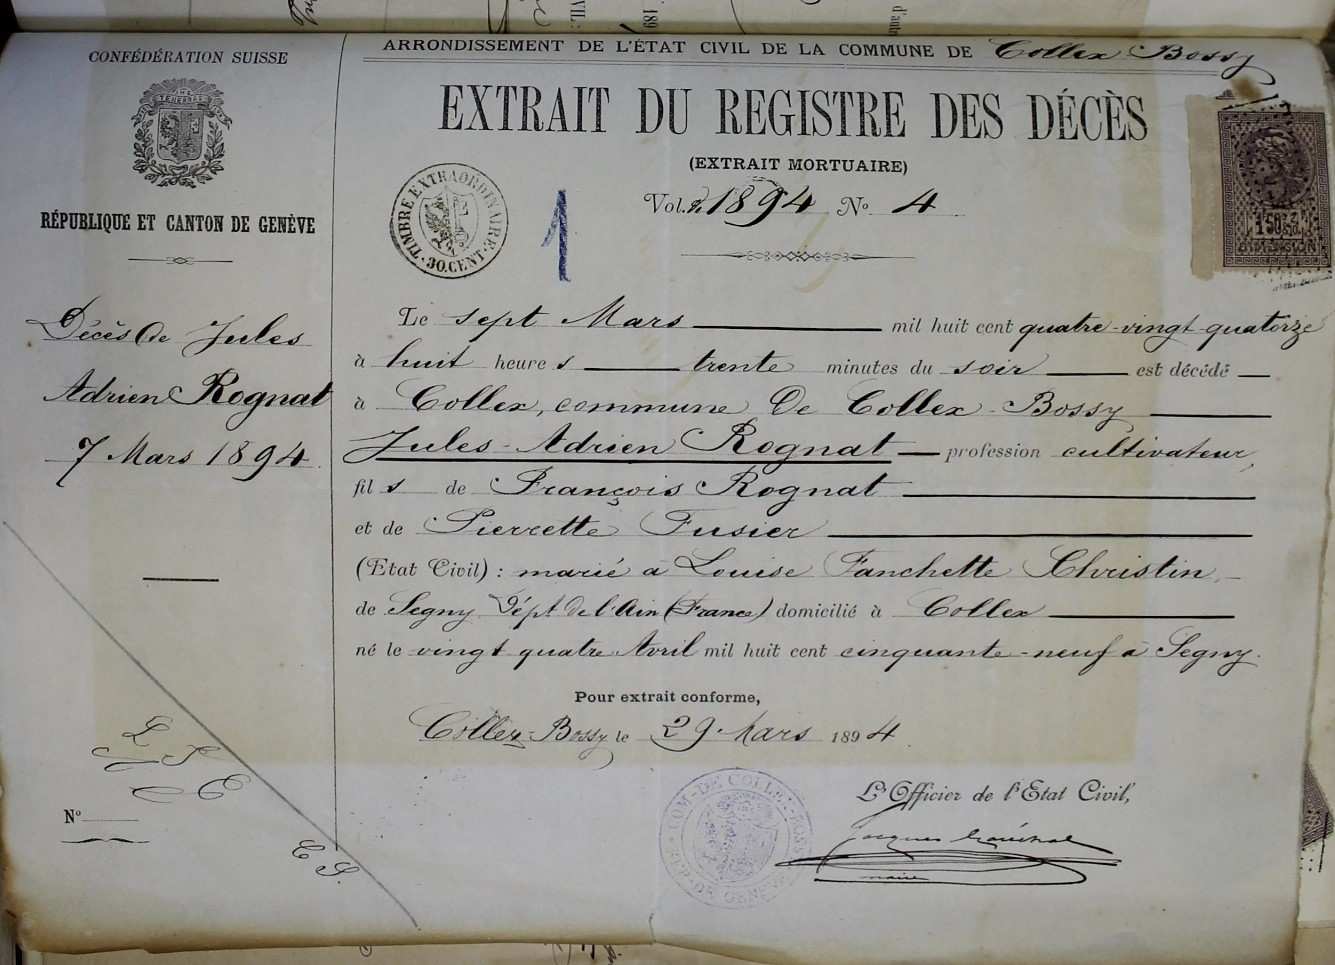 CONFÉDÉRATION SUISSE
POST TENEBRAS LUX
RÉPUBLIQUE ET CANTON DE GENÈVE
Décès de Jules
Adrien Rognat
7 Mars 1894
Nº
ARRONDISSEMENT DE L'ÉTAT CIVIL DE LA COMMUNE DE Collex-Bossy
EXTRAIT DU REGISTRE DES DÉCÈS
(EXTRAIT MORTUAIRE)
TIMBRE EXTRAORDINAIRE · 30 CENT ·
1
Vol. 1894 Nº 4
1 50
Le sept Mars mil huit cent quatre-vingt-quatorze
à huit heures trente minutes du soir est décédé
à Collex, commune de Collex-Bossy
Jules-Adrien Rognat profession cultivateur,
fils de François Rognat
et de Pierrette Fusier
(Etat Civil) : marié à Louise Fanchette Christin,
de Segny Dépt de l'Ain (France) domicilié à Collex
né le vingt quatre Avril mil huit cent cinquante-neuf à Segny.
Pour extrait conforme,
Collex-Bossy le 29 Mars 1894
L'Officier de l'Etat Civil,
Jacques
maire
COM. DE COLLEX-BOSSY
REP. DE GENÈVE